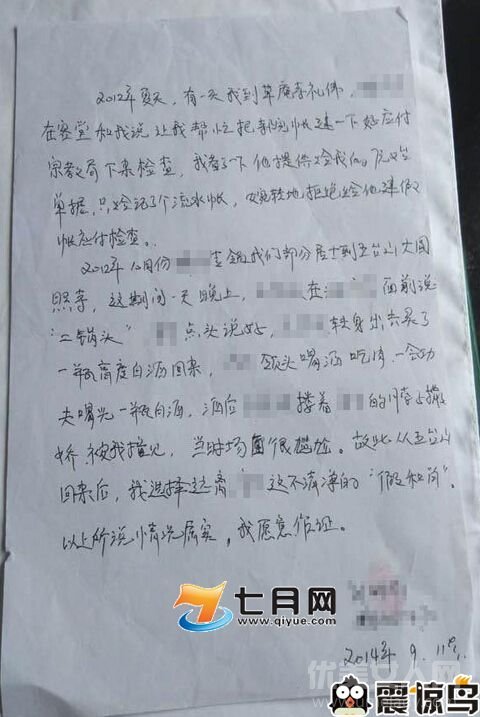 2012年夏天，有一天我到草庵寺礼佛，
在客堂和我说让我帮忙把寺院帐建一下好应付
宗教局下来检查，我看了下他提供给我的
单据，只给记了个流水帐，婉转地拒绝给他建假
帐应付检查。
2012年 月份 我们部分居士到五台山大圆
照寺，这期间一天晚上， 在 面前说
"二锅头" 点头说好， 转身出去买了
一瓶高度白酒回来， 领头喝酒吃肉，一会功
夫喝光一瓶白酒，酒后 撑着 的 撒
娇被我撞见，当时场面很尴尬。故此从五台山
回来后，我选择远离 这不清净的"假和尚"。
以上所说情况属实，我愿意作证。
七月网
www.qiyue.com
2014年9.11日
优美女人网
震惊鸟